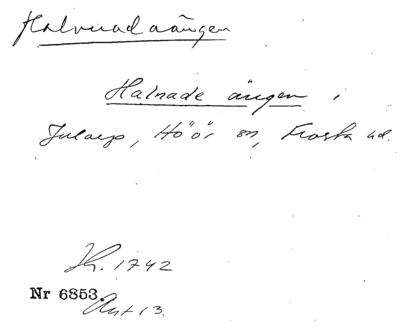 Halvnadaängen
Halnade ängen i
Jularp, Höör sn, Frosta hd.
Kr. 1742
Nr 6853.
Akt 13.